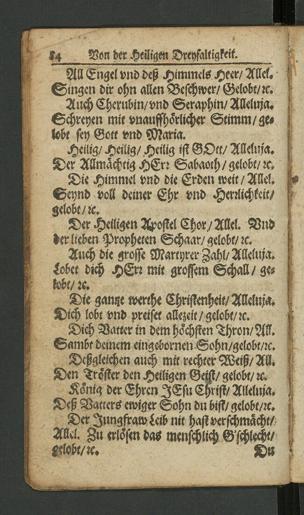 84 Von der Heiligen Dreyfaltigkeit.
All Engel vnd deß Himmels Heer/ Allel.
Singen dir ohn allen Beschwer/ Gelobt/ ꝛc.
Auch Cherubin/ vnd Seraphin/ Alleluja.
Schreyen mit vnauffhörlicher Stimm/ ge-
lobt sey Gott vnd Maria.
Heilig/ Heilig/ Heilig ist GOtt/ Alleluja.
Der Allmächtig HErꝛ Sabaoth/ gelobt/ ꝛc.
Die Himmel vnd die Erden weit/ Allel.
Seynd voll deiner Ehr vnd Herrlichkeit/
gelobt/ ꝛc.
Der Heiligen Apostel Chor/ Allel. Vnd
der lieben Propheten Schaar/ gelobt/ ꝛc.
Auch die grosse Martyrer Zahl/ Alleluja.
Lobet dich HErꝛ mit grossem Schall/ ge-
lobt/ ꝛc.
Die gantze werthe Christenheit/ Alleluja.
Dich lobt vnd preiset allezeit/ gelobt/ ꝛc.
Dich Vatter in dem höchsten Thron/ All.
Sambt deinem eingebornen Sohn/ gelobt/ ꝛc.
Deßgleichen auch mit rechter Weiß/ All.
Den Tröster den Heiligen Geist/ gelobt/ ꝛc.
König der Ehren JEsu Christ/ Alleluja.
Deß Vatters ewiger Sohn du bist/ gelobt/ ꝛc.
Der Jungfraw Leib nit hast verschmächt/
Allel. Zu erlösen das menschlich G'schlecht/
gelobt/ ꝛc. Du